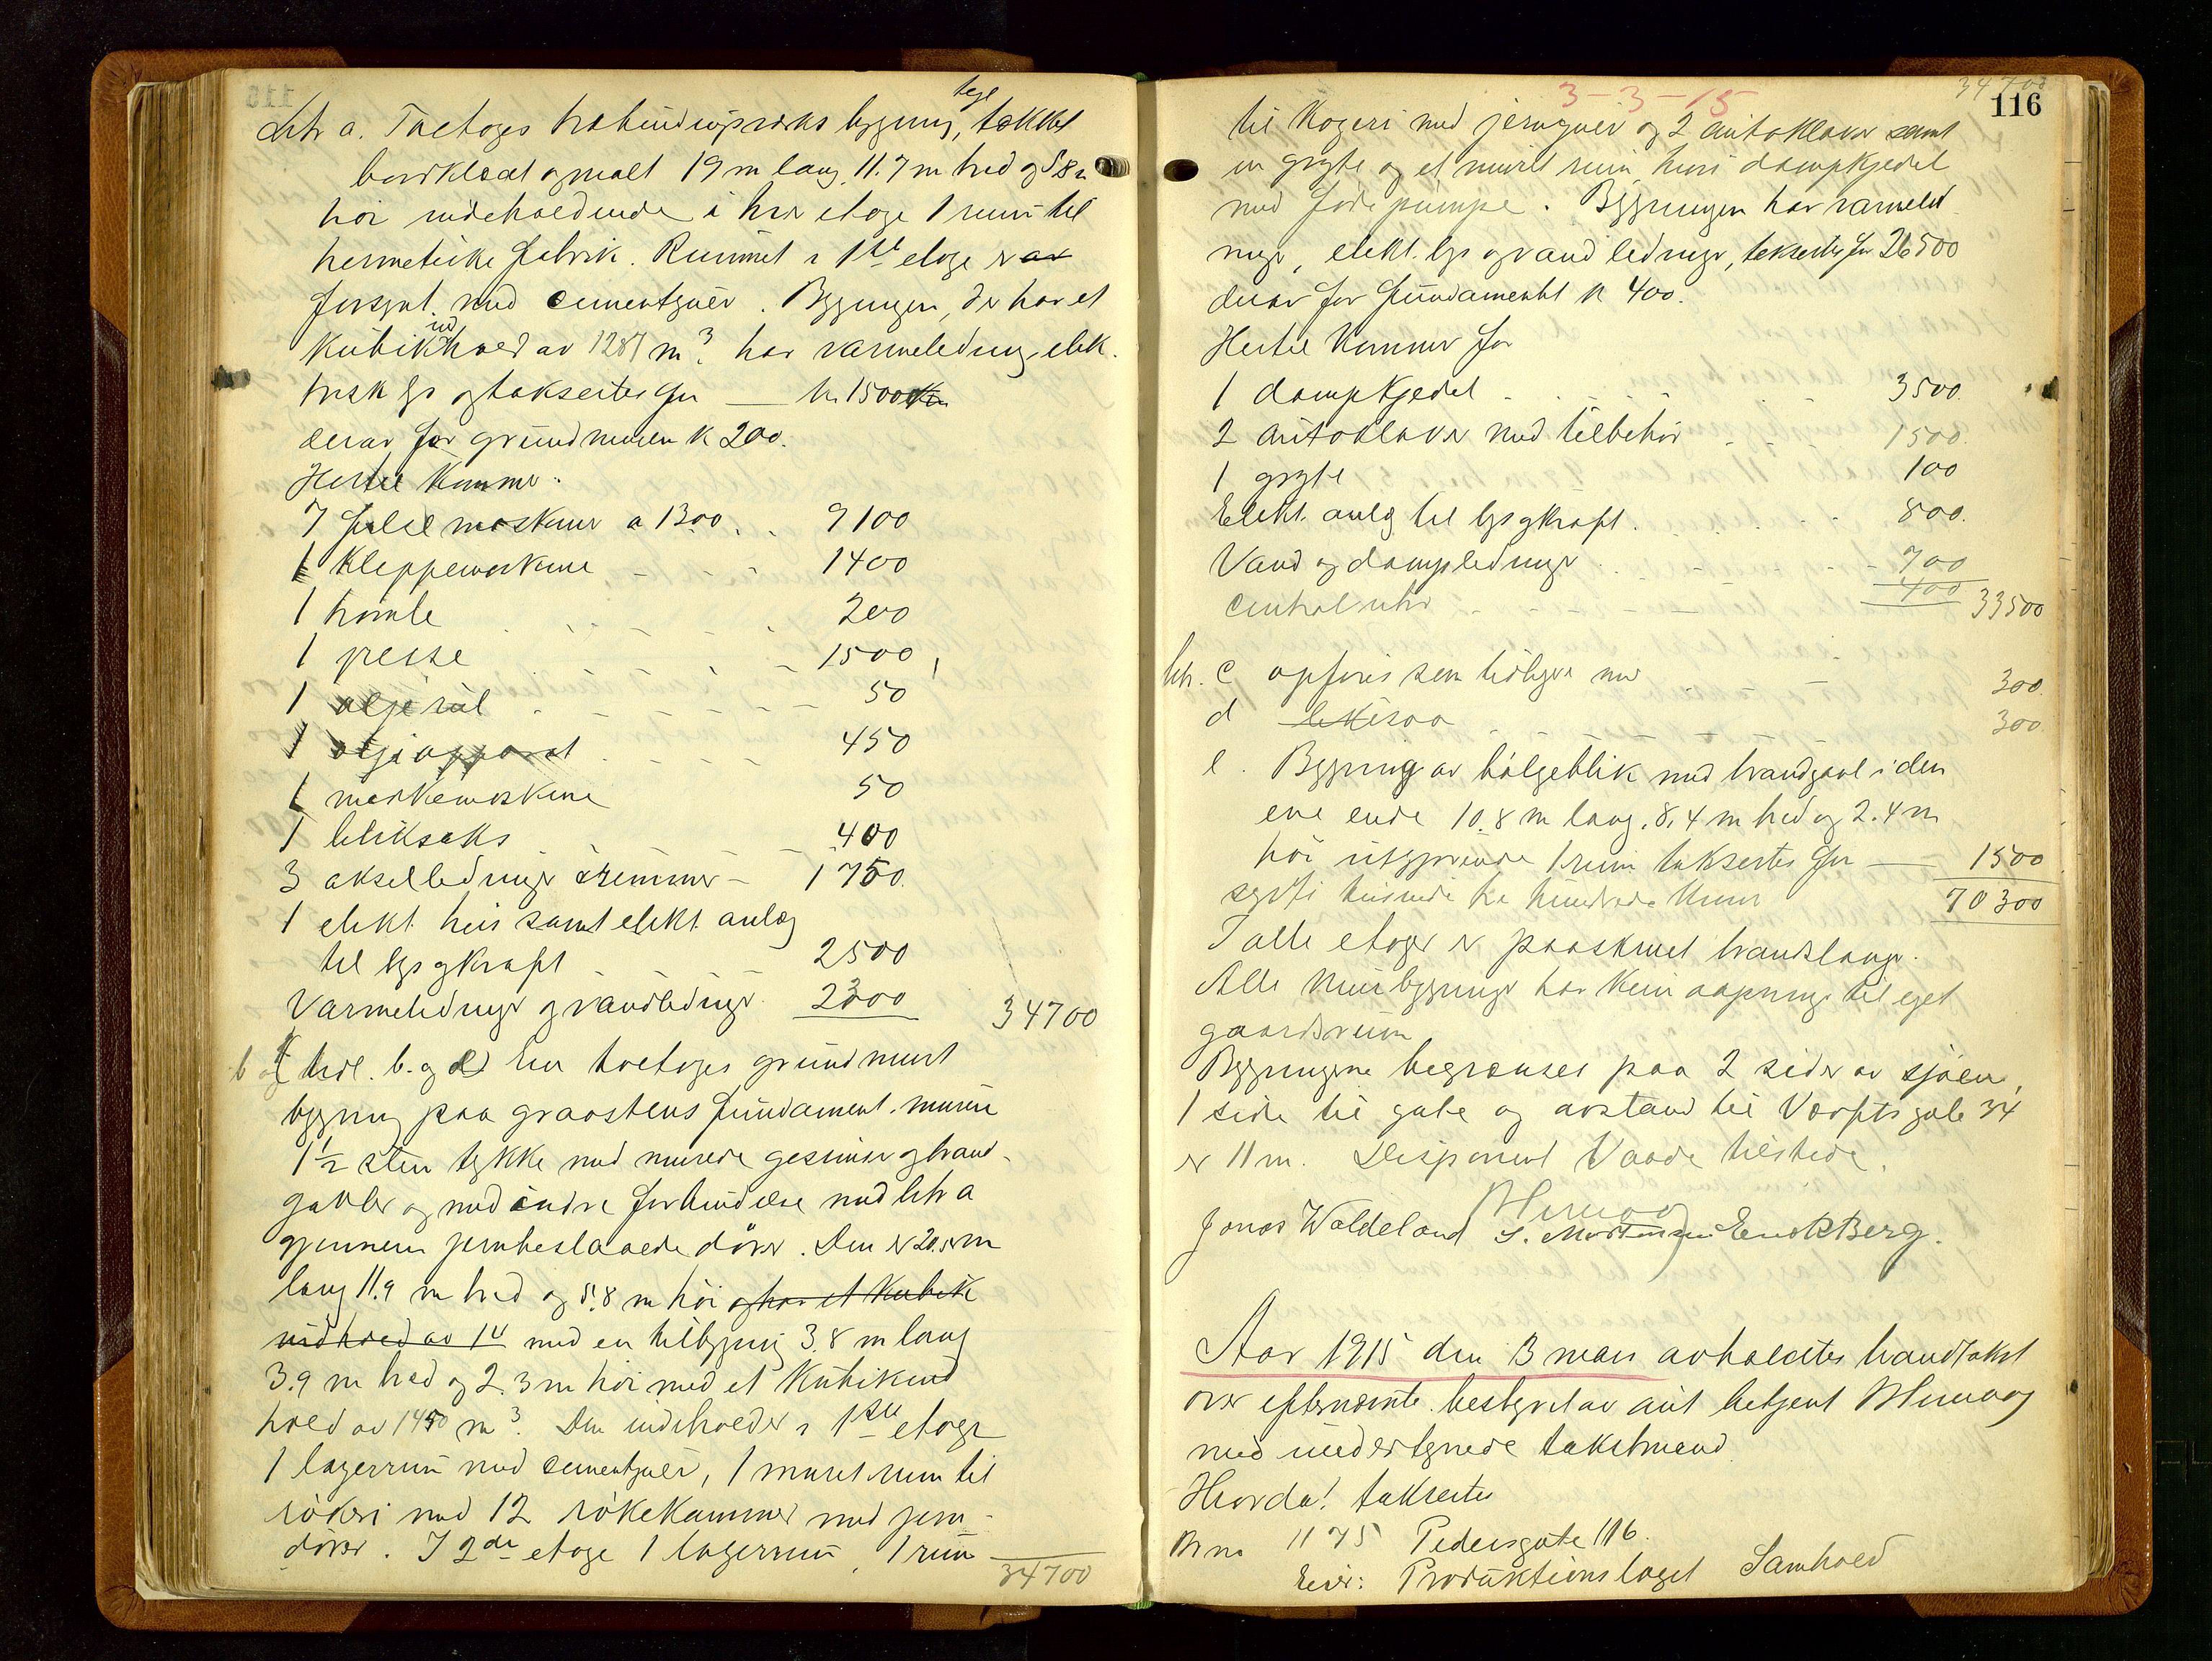 Litr a. Toetages trebindingsverks bygning, tegl tækket
bordklædt og malt 19 m lang, 11.7 m bred og 5.8 m
høi indeholdende i hver etage 1 rum til
hermetikke fabrik. Rummet i 1ste etage er av
forsynt med cementgulv. Bygningen, der har et
Kubikindhold av 1287 m³, har varmeledning, elek-
trisk lys og takseres for — kr 15000
derav for grundmuren k 200.
Hertil kommer:
7 false maskiner a 1300 . . 9100
1 Klippemaskine - - - 1400
1 tromle 200
1 presse 1500
1 olje 50
1 oljeapparat 450
1 merkemaskine 50
1 bliksaks 400
3 akselledninger & remmer - 1750.
1 elekt. heis samt elekt. anlæg
til lys og kraft 2500
Varmeledninger og vandledninger 2300 34700
b hvl. b. og d En toetages grundmuret
bygning paa graastens fundament. murene
1½ sten tykke med murede gesimser og brand-
gavler og med indre forbindelse med litr a
gjennem jernbeslaaede dører. Den er 20.5 m
lang 11.9 m bred og 5.8 m høi og har et Kubik
indhold av 14 med en tilbygning 3.8 m lang
3.9 m bred og 2.3 m høi med et Kubikind
hold av 1450 m³. Den indeholder i 1ste etage
1 lagerrum med cementgulv, 1 muret rum til
røkeri med 12 røkekammer med jern-
dører. I 2den etage 1 lagerrum, 1 rum
34700
3-3-15
34700
116
til Kogeri med jerngulv og 2 autoklaver samt
en gryte og et muret rum, hvori dampkjedel
med fødepumpe. Bygningen har varmeled
ninger, elekt. lys og vand ledninger, takseres for 26500
derav for fundamentet k 400.
Hertil Kommer for
1 dampkjedel 3500.
2 autoklaver med tilbehør 1500.
1 gryte 100
Elekt. anlæg til lys og kraft. 800.
Vand og dampledninger 700
400 33500
litr. c opføres som tidligere med 300.
d likesaa 300
e. Bygning av bølgeblik med brandgavl i den
ene ende 10.8 m lang, 8.4 m bred og 2.4 m
høi utgjørende 1 rum takseres for — 1500
sytti tusinde tre hundrede kroner 70300
I alle etager er paaskruet brandslange.
Alle murbygninger har kun aapninger til eget
gaardsrum
Bygningene begrænses paa 2 sider av sjøen,
1 side til gate og avstand til Værftsgate 34
er 11 m. Disponent Vaade tilstede.
Jonas Waldeland S. Mortensen Enok Berg.
Aar 1915 den 3 mars avholdtes brandtakst
over efternævnte. bestyret av amt betjent
med undertegnede takstmænd
Hvorda! takseres
Br no 1175 Pedersgate 116.
Eier: Produktionslaget Samhold